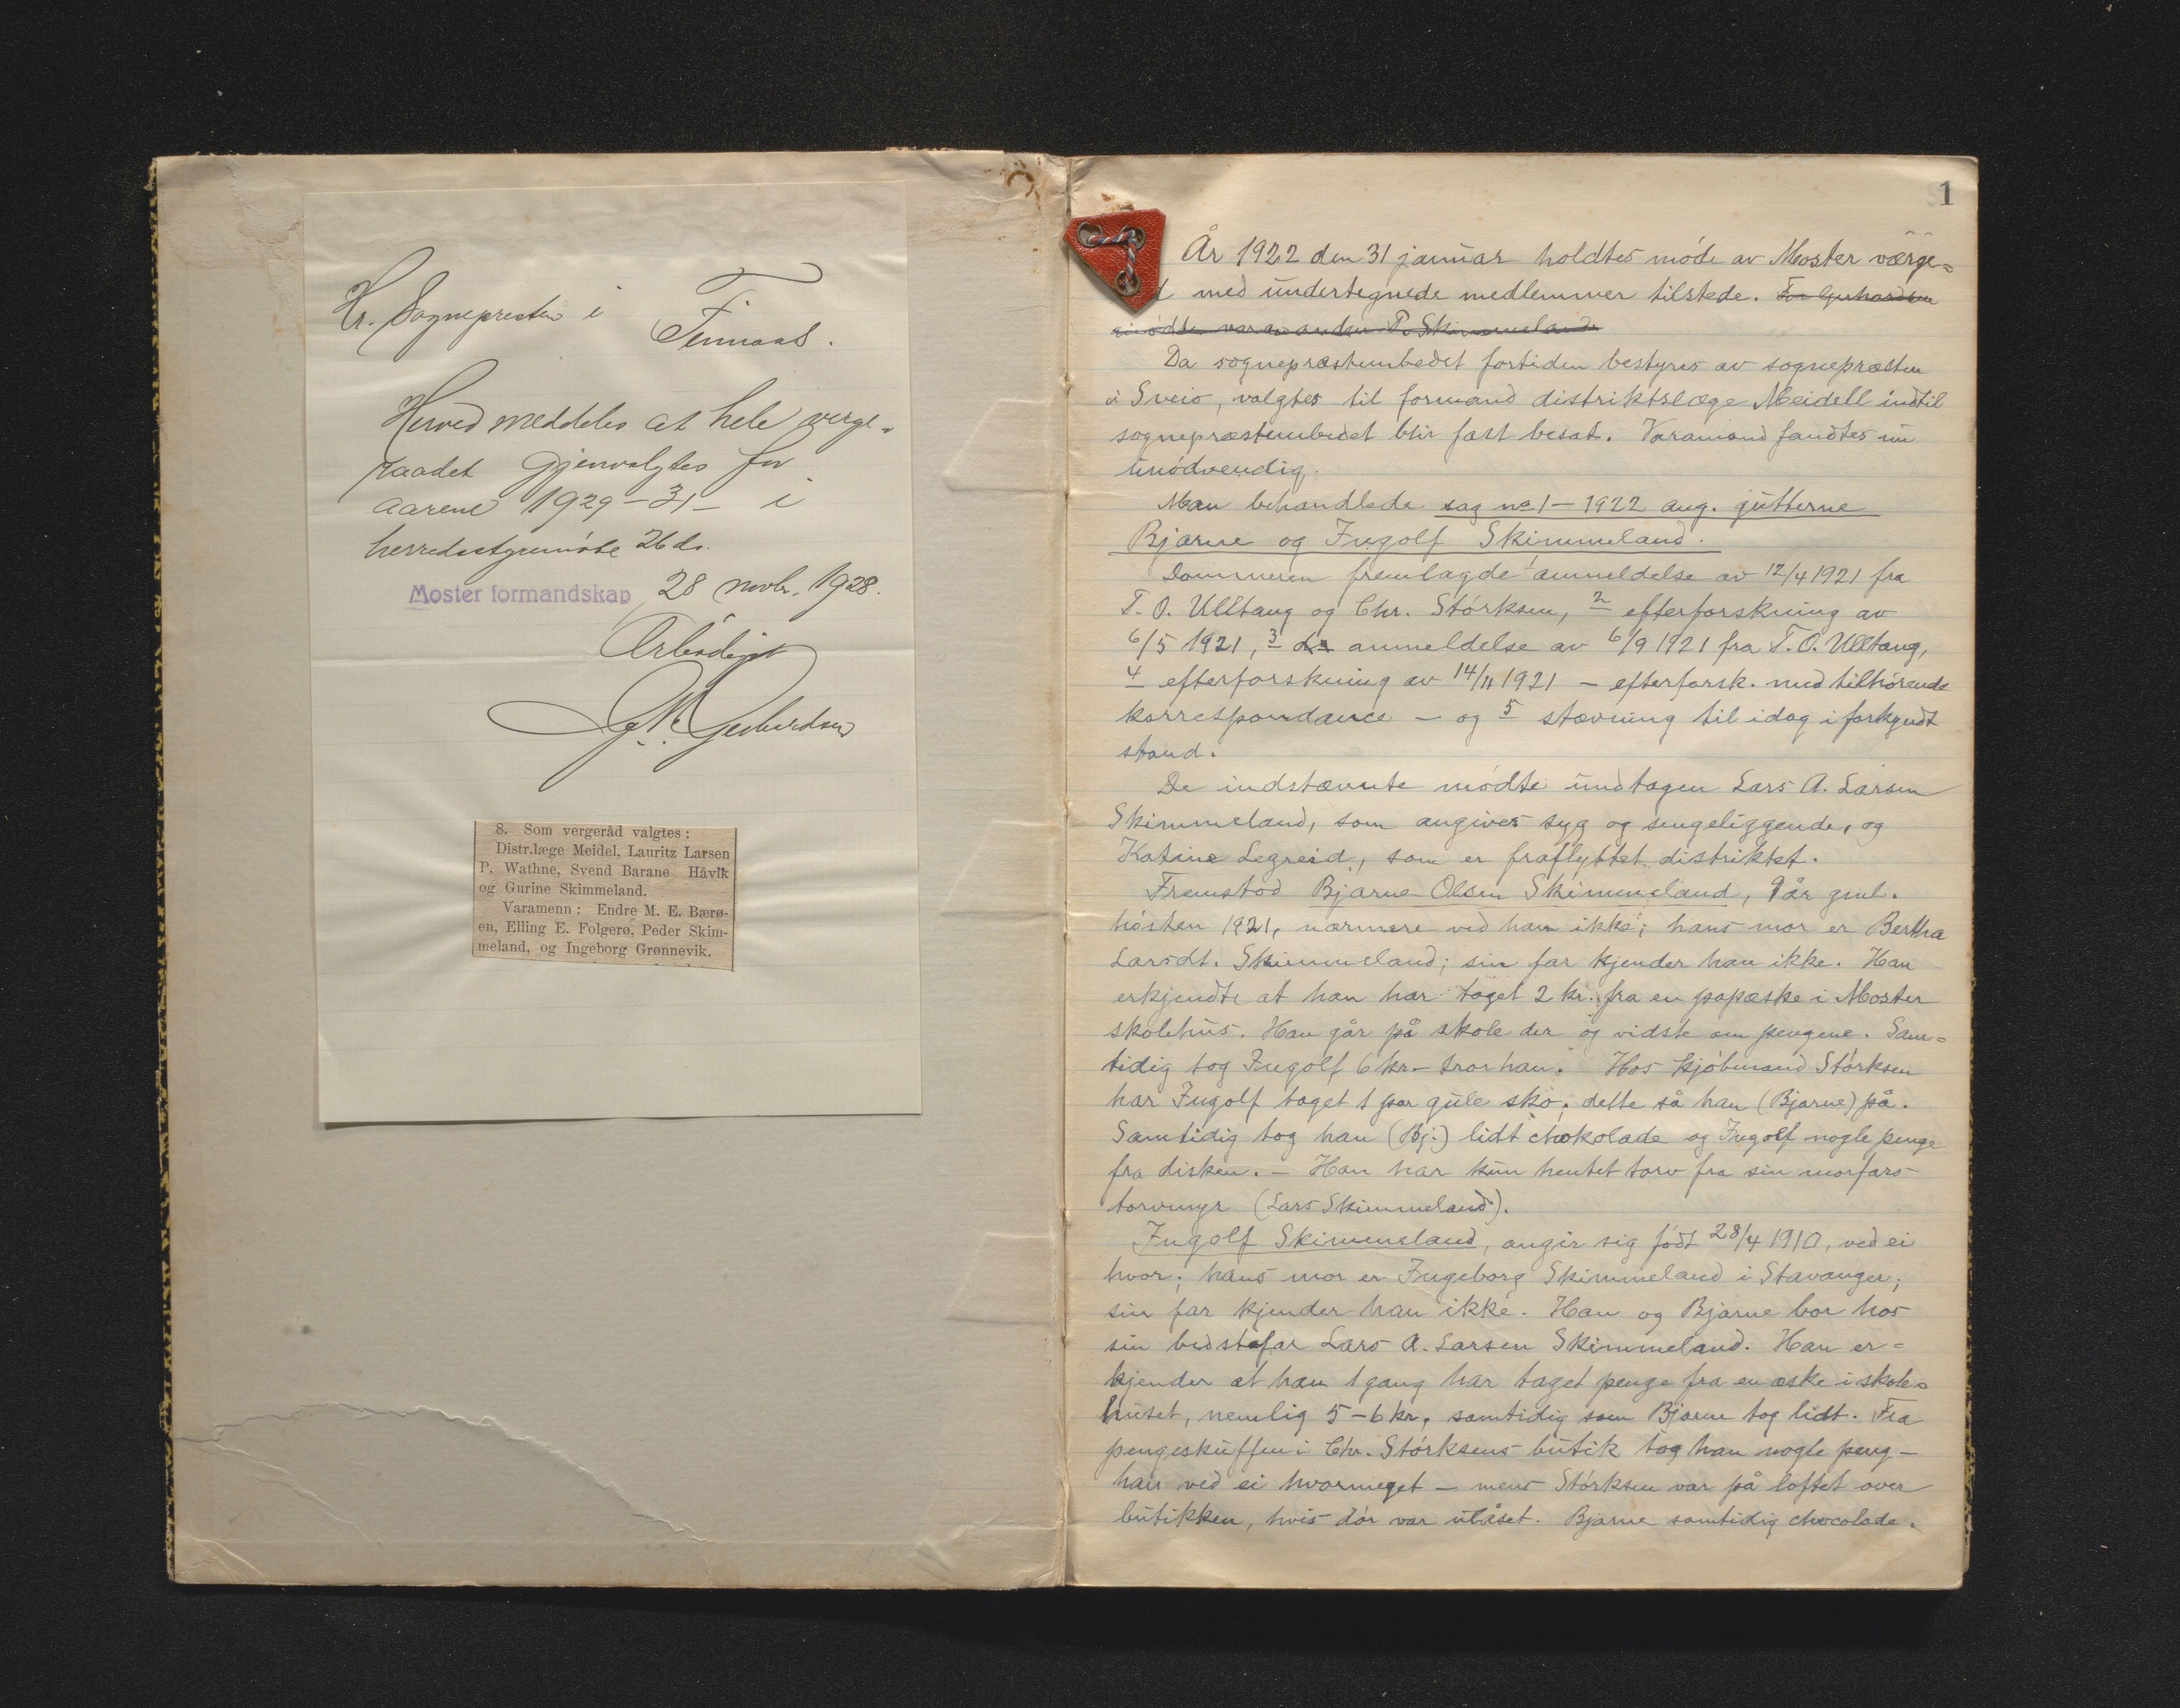 Hr. Sognepresten i
Finnaas.
Herved meddeles at hele verge-
raadet gjenvalgtes for
aarene 1929-31- i
herredsstyremöte 26 ds.
Moster formandskap 28 novbr. 1928.
Ærbödigst
Gerhardsen
8. Som vergeråd valgtes:
Distr.læge Meidel, Lauritz Larsen
P. Wathne, Svend Barane Håvik
og Gurine Skimmeland.
Varamenn: Endre M. E. Bærø-
en, Elling E. Folgerø, Peder Skim-
meland, og Ingeborg Grønnevik.
1
År 1922 den 31 januar holdtes möde av Moster værge=
med undertegnede medlemmer tilstede. For Gerhardsen
mödte varamanden P. Skimmeland
Da sognepræstembedet fortiden bestyres av sognepræsten
i Sveio, valgtes til formand distriktslæge Meidell indtil
sognepræstembedet blir fast besat. Varamand fandtes nu
unödvendig.
Man behandlede sag no 1 - 1922 ang. gutterne
Bjarne og Ingolf Skimmeland.
Dommeren fremlagde 1 anmeldelse av 12/4 1921 fra
T. O. Ulltang og Chr. Störksen, 2 efterforskning av
6/5 1921, 3 anmeldelse av 6/9 1921 fra T. O. Ulltang,
4 efterforskning av 14/11 1921 - efterforsk. med tilhörende
korrespondance - og 5 stævning til idag i forkyndt
stand.
De indstævnte mödte undtagen Lars A. Larsen
Skimmeland, som angives syg og sengeliggende, og
Katine Legreid, som er fraflyttet distriktet.
Fremstod Bjarne Olsen Skimmeland, 9 år gml.
hösten 1921, nærmere ved han ikke; hans mor er Bertha
Larsdt. Skimmeland; sin far kjender han ikke. Han
erkjendte at han har taget 2 kr. fra en papæske i Moster
skolehus. Han går på skole der og vidste om pengene. Sam=
tidig tog Ingolf 6 kr. - tror han. Hos kjöbmand Störksen
har Ingolf taget 1 par gule sko; dette så han (Bjarne) på.
Samtidig tog han (Bj.) lidt chokolade og Ingolf nogle penge
fra disken. - Han har kun hentet torv fra sin morfars
torvmyr (Lars Skimmeland).
Ingolf Skimmeland, angir sig födt 28/4 1910, ved ei
hvor; hans mor er Ingeborg Skimmeland i Stavanger;
sin far kjender han ikke. Han og Bjarne bor hos
sin bedstefar Lars A. Larsen Skimmeland. Han er=
kjender at han 1 gang har taget penge fra en æske i skole=
huset, nemlig 5-6 kr, samtidig som Bjarne tog lidt. Fra
pengeskuffen i Chr. Störksens butik tog han nogle peng -
han ved ei hvormeget - mens Störksen var på loftet over
butikken, hvis dör var ulåset. Bjarne samtidig chocolade.